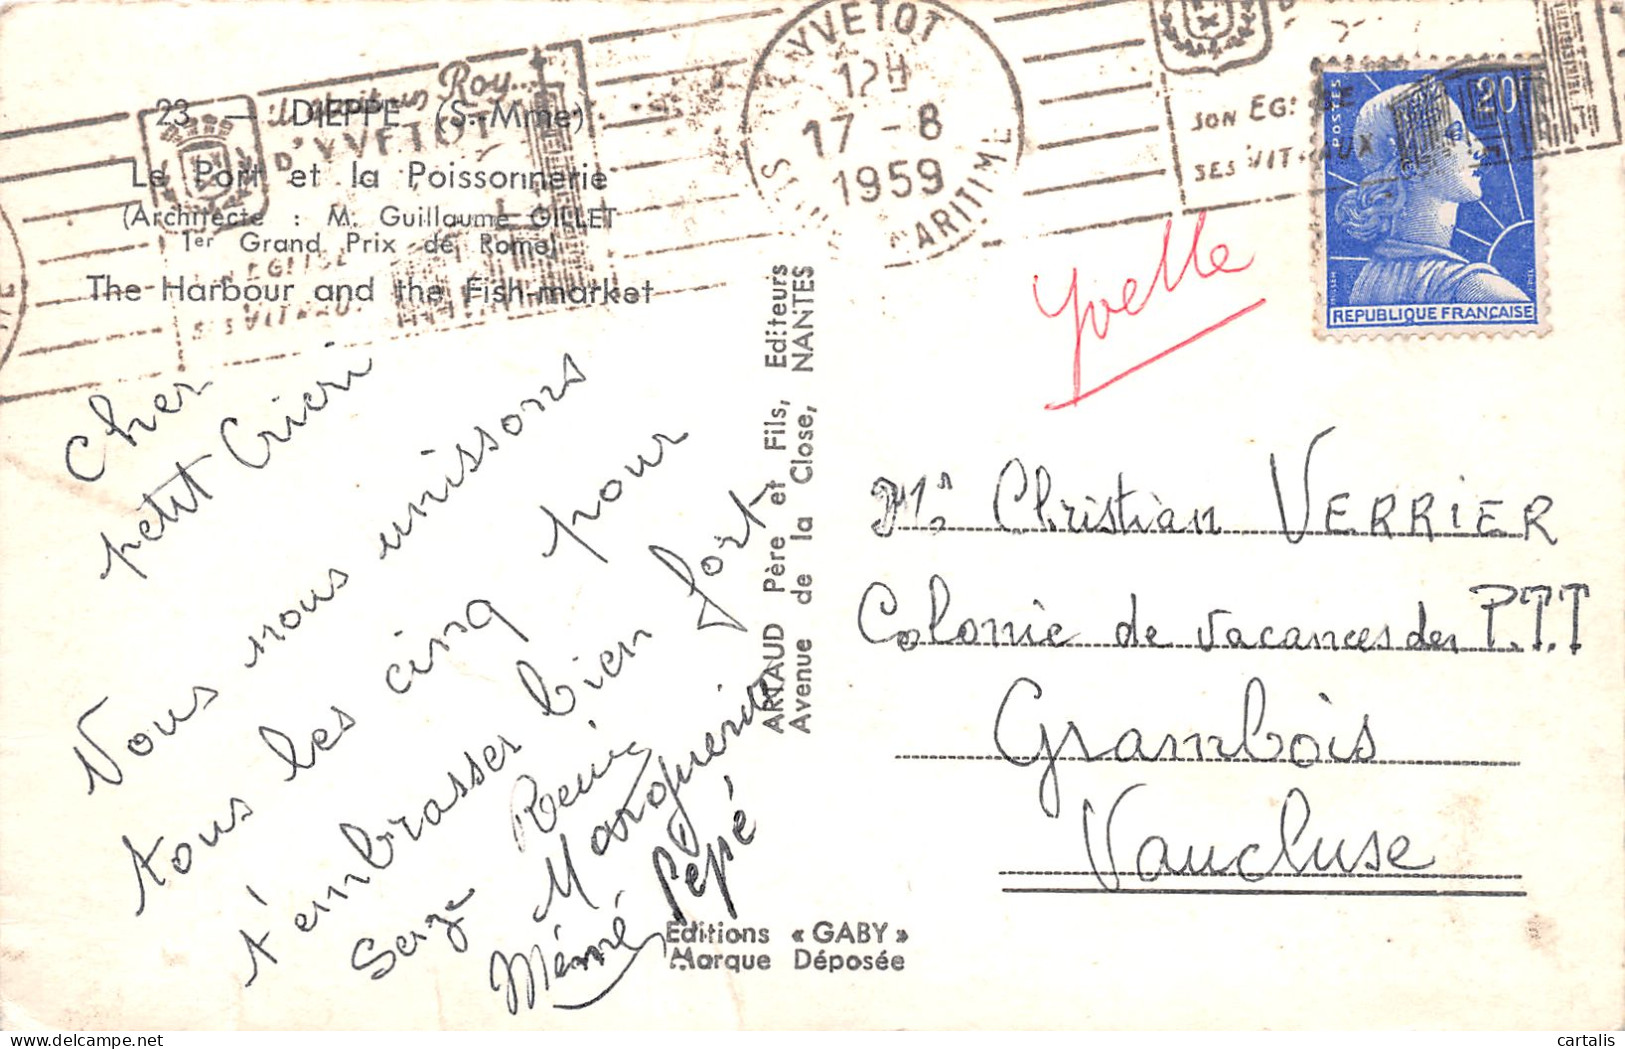 23 — DIEPPE (S.-Mme)
Le Port et la Poissonnerie
(Architecte : M. Guillaume GILLET
1er Grand Prix de Rome)
The Harbour and the Fish-market
Il était un Roy...
D'YVETOT
SES VIT
YVETOT
12H
17 - 8
1959
MARITIME
SON EG
SES VIT AUX
POSTES
20F
REPUBLIQUE FRANÇAISE
Yvelle
Cher
petit Cricri
Vous nous unissons
tous les cinq pour
t'embrasser bien fort
Serge
Marguerite
Mémé Pépé
ARTAUD Père et Fils, Editeurs
Avenue de la Close, NANTES
Mr Christian VERRIER
Colonie de vacances des P.T.T
Grambois
Vaucluse
Editions « GABY »
Marque Déposée
cartalis